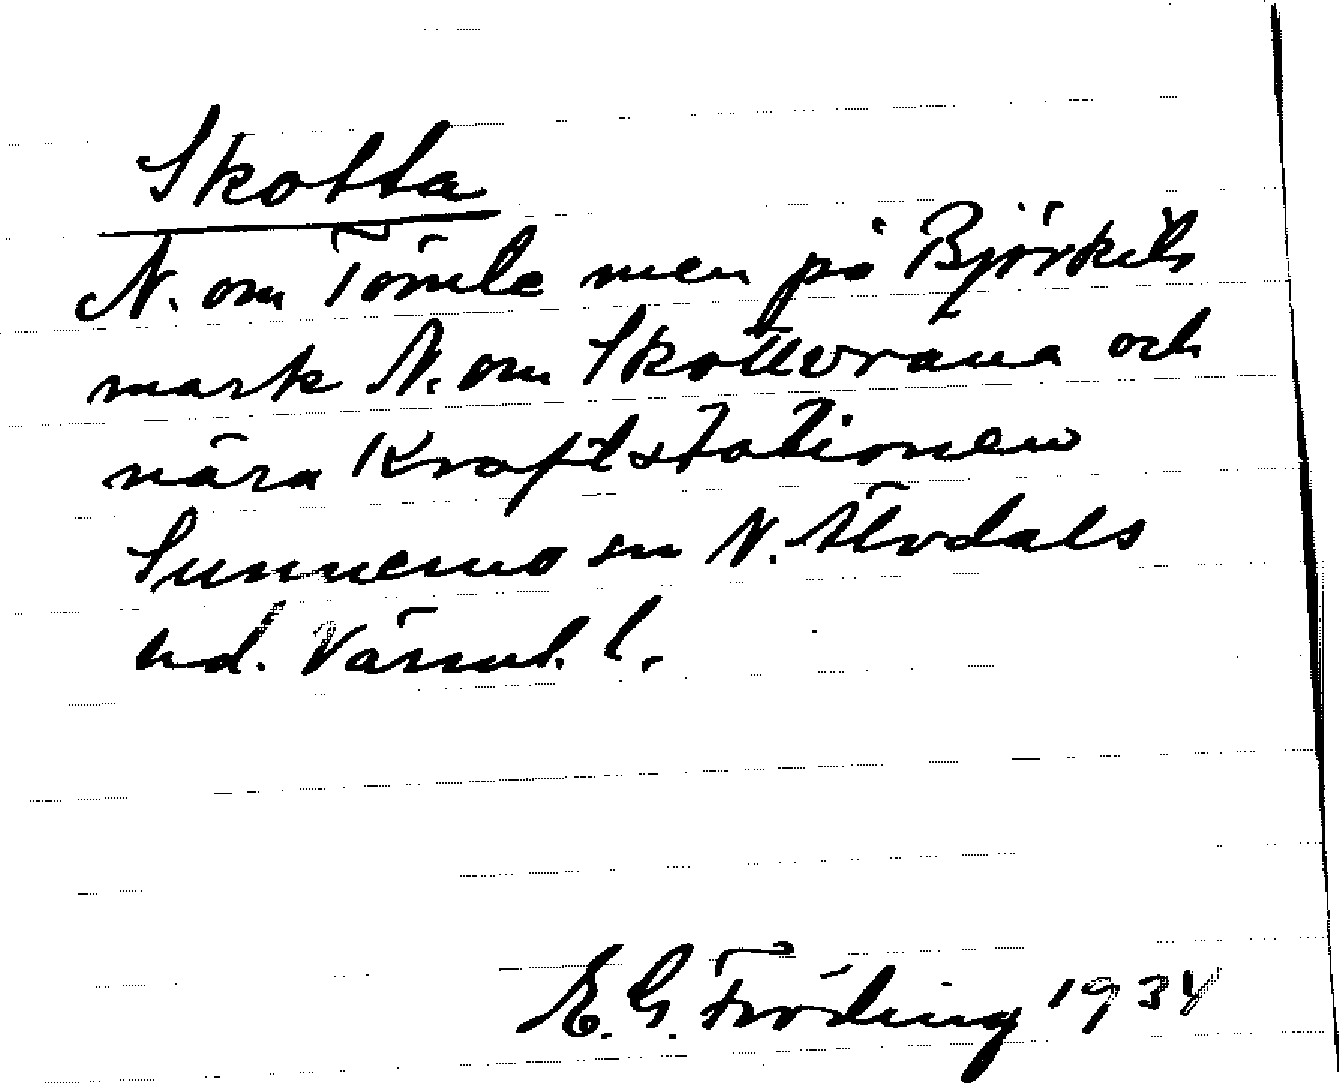 Skotta
N. om Tömle men på Björkils
mark N. om Skottvrana och
nära Kraftstationen
Sunnemo sn N. Älvdals
hd. Värml. l.
E. G. Fröding 1934